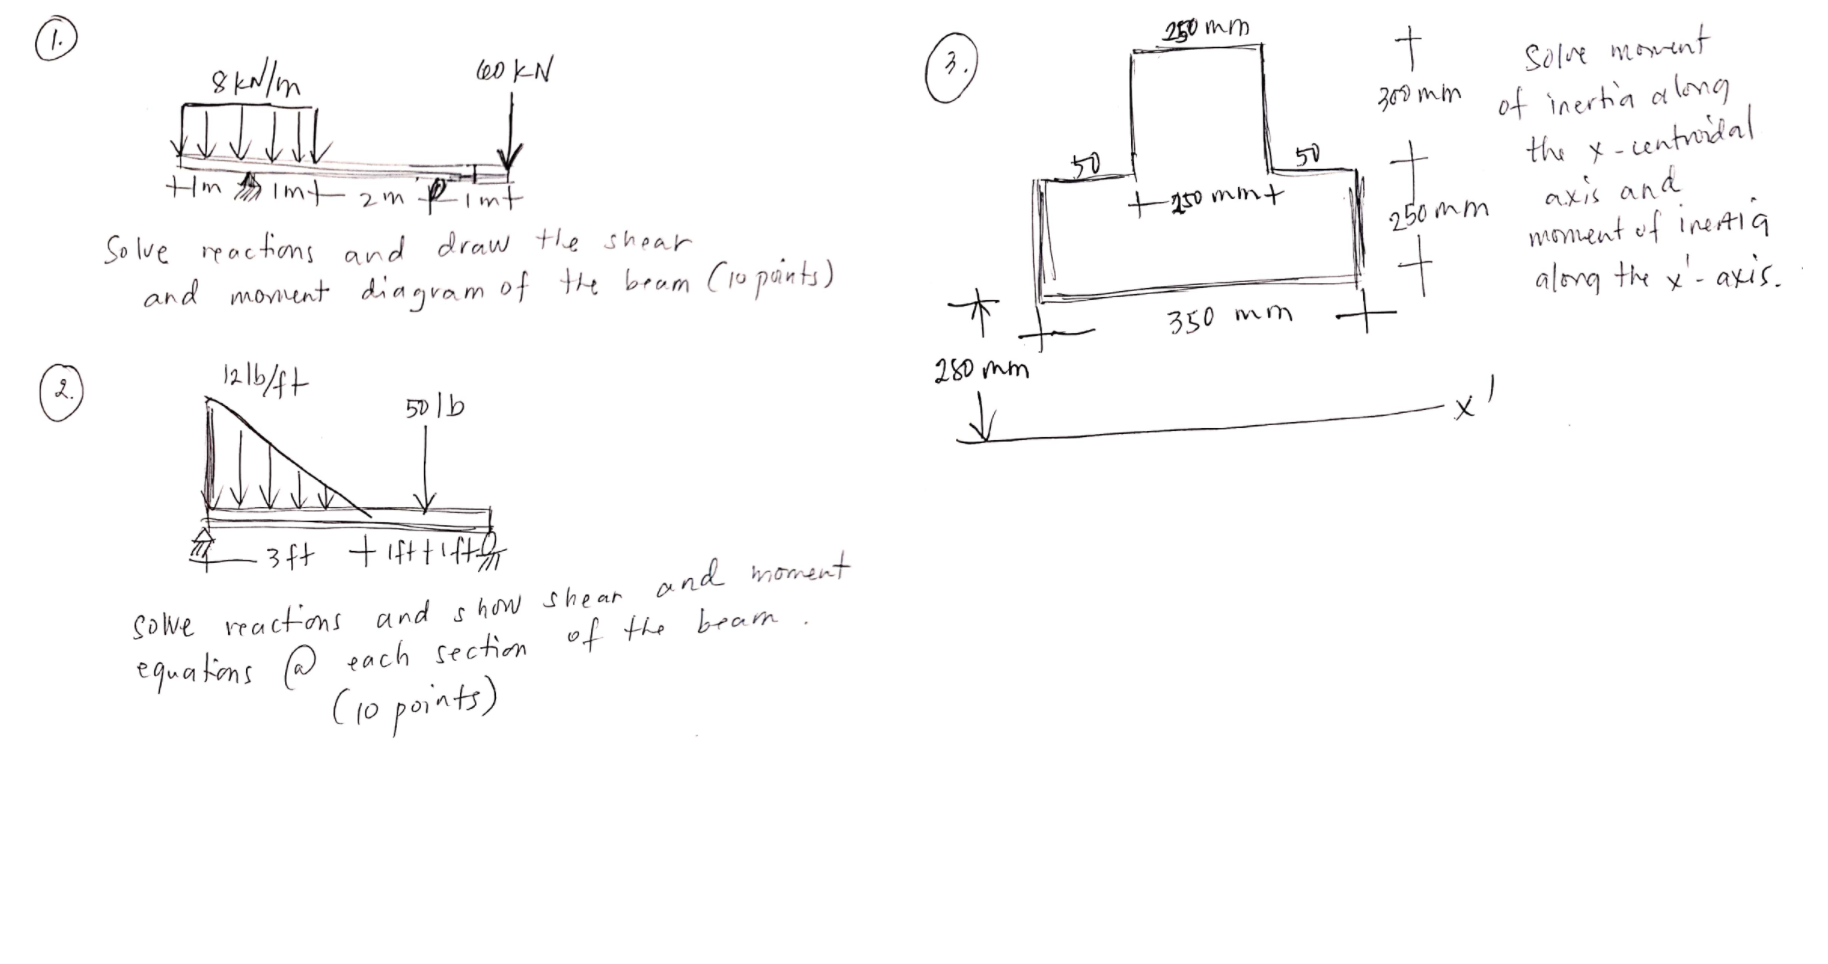 1.
8 kN/m
60 kN
1m 1m 2m 1m
Solve reactions and draw the shear
and moment diagram of the beam (10 points)
2.
12 lb/ft
50 lb
3ft 1ft 1ft
Solve reactions and show shear and moment
equations @ each section of the beam.
(10 points)
3.
250 mm
300 mm
50
50
250 mm
250 mm
350 mm
280 mm
x'
Solve moment
of inertia along
the x-centroidal
axis and
moment of inertia
along the x'-axis.